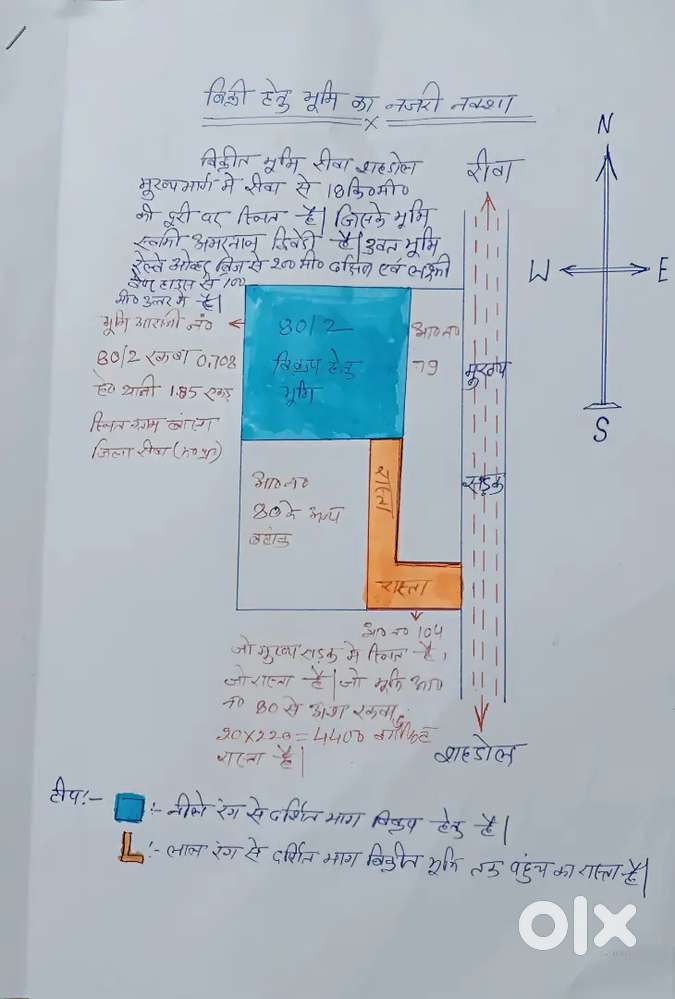 बिक्री हेतु भूमि का नजरी नक्शा
X
विक्रीत भूमि रीवा शहडोल
मुख्यमार्ग मे रीवा से 18 कि०मी०
की दूरी पर स्थित है| जिसके भूमि
स्वामी अमरनाथ द्विवेदी है| उक्त भूमि
रेल्वे ओव्हर ब्रिज से 200 मी० दक्षिण एवं
वेयर हाउस से 100
मी० उत्तर मे है|
भूमि आराजी नं०
80/2 रकवा 0.708
हे० यानी 1.85 एकड़
स्थित ग्राम
जिला रीवा (म०प्र०)
80/2
विक्रय हेतु
भूमि
आ० न०
79
आ० न०
80 के अन्य
बटांक
रास्ता
रास्ता
आ० न० 104
रीवा
मुख्य
सड़क
शहडोल
N
W
E
S
जो मुख्य सड़क मे स्थित है,
जो रास्ता है| जो भूमि आ०
न० 80 से अंश रकवा
20x220=4400 वर्गफिट
रास्ता है|
टीप:-
:- नीले रंग से दर्शित भाग विक्रय हेतु है|
:- लाल रंग से दर्शित भाग विक्रीत भूमि तक पहुंच का रास्ता है|
olx